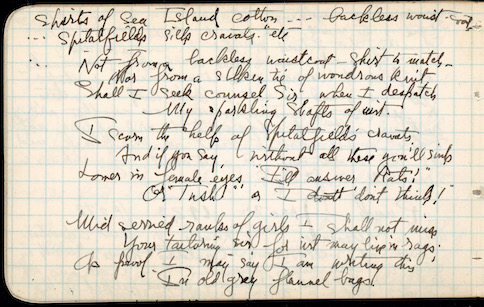 Shirts of Sea Island cotton --- backless waist-coat
... Spitalfields silks cravats. etc
Not from a backless waistcoat - shirt to match -
Nor from a silken tie of wondrous knit
Shall I seek counsel Sir, when I despatch
My sparkling shafts of wit.
I scorn the help of Spitalfields cravats,
And if you say, "without all these you'll sink
Lower in female eyes", I'll answer "Rats!"
Or "Tush!" or I don't think!"
Mid serried ranks of girls I shall not miss
Your tailoring sir, for wit may live in rags.
As proof I may say I am writing this
In old grey flannel bags.